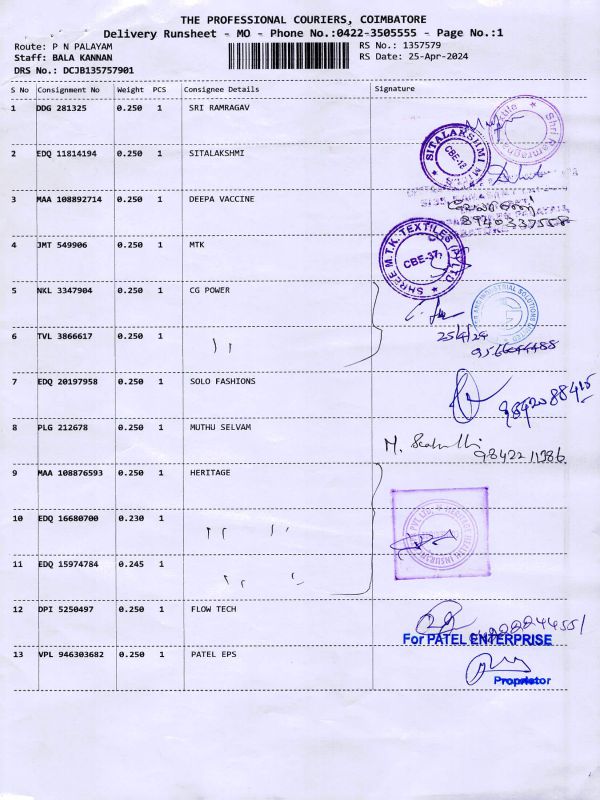 THE PROFESSIONAL COURIERS, COIMBATORE
Delivery Runsheet - MO - Phone No.:0422-3505555 - Page No.:1
Route: P N PALAYAM
RS No.: 1357579
Staff: BALA KANNAN
RS Date: 25-Apr-2024
DRS No.: DCJB135757901
S No Consignment No Weight PCS Consignee Details Signature
1 DDG 281325 0.250 1 SRI RAMRAGAV
2 EDQ 11814194 0.250 1 SITALAKSHMI
SITALAKSHMI
CBE-18
3 MAA 108892714 0.250 1 DEEPA VACCINE
8940337558
4 JMT 549906 0.250 1 MTK
SHREE M.T.K. TEXTILES (P) LTD
CBE-37
5 NKL 3347904 0.250 1 CG POWER
INDUSTRIAL SOLUTIONS LIMITED
6 TVL 3866617 0.250 1 ı ı
25/4/24
9566044488
7 EDQ 20197958 0.250 1 SOLO FASHIONS
9842088415
8 PLG 212678 0.250 1 MUTHU SELVAM
9842211386
9 MAA 108876593 0.250 1 HERITAGE
10 EDQ 16680700 0.230 1
11 EDQ 15974784 0.245 1
12 DPI 5250497 0.250 1 FLOW TECH
For PATEL ENTERPRISE
13 VPL 946303682 0.250 1 PATEL EPS
Proprietor